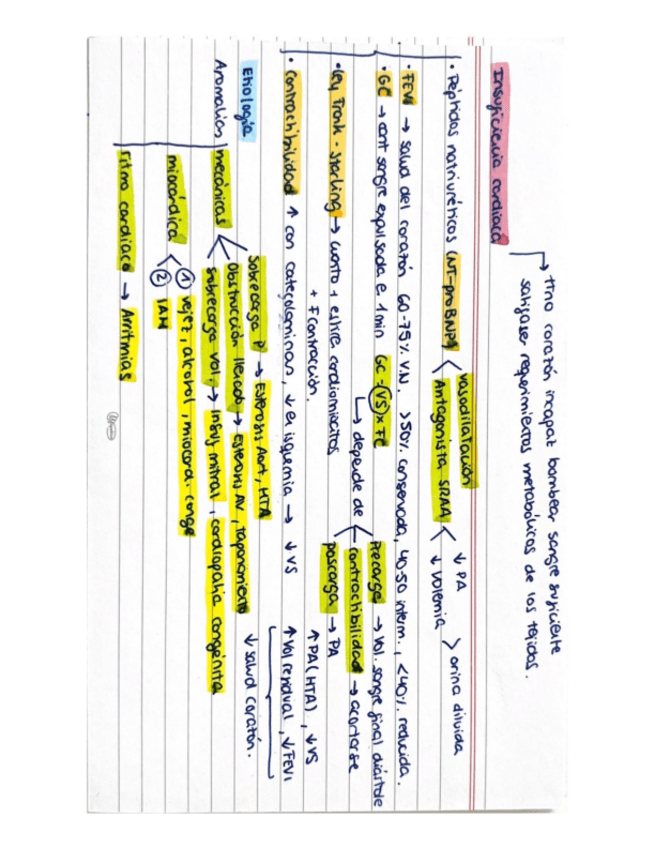 Insuficiencia cardiaca
↳ tmo corazón incapaz bombear sangre suficiente
satisfacer requerimientos metabólicos de los tejidos.
• Péptidos natriuréticos (NT-proBNP) < vasodilatación
Antagonista SRAA < ↓ PA
↓ volemia > orina diluida
• FEVI → salud del corazón 60-75% VN, >50% conservada, 40-50 interm., <40% reducida.
• GC → cant sangre expulsada e 1 min GC = (VS) x FC
↳ depende de < Precarga → Vol. sangre final diástole
contractibilidad → acortarse
poscarga → PA
• Ley Frank-Starling → cuanto + estire cardiomiocitos
+ F contracción.
↑ PA (HTA), ↓ VS
• Contractibilidad ↑ con catecolaminas, ↓ en isquemia → ↓ VS
↑ Vol residual, ↓ FEVI
↓ salud corazón.
Etiología
Anomalías
mecánicas
Sobrecarga P → Estenosis Aort, HTA
Obstrucción llenado → estenosis AV, taponamiento
sobrecarga vol. → insuf mitral, cardiopatía congénita
miocárdica < ① vejez, alcohol, miocard. conge
② IAM
ritmo cardiaco → Arritmias